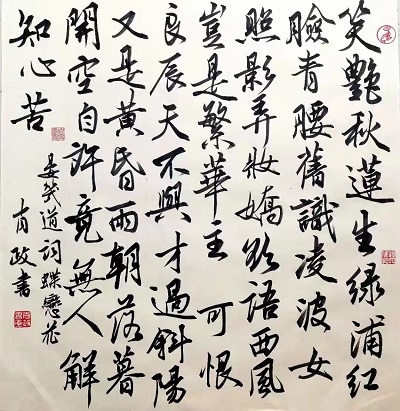 笑艷秋蓮生绿浦紅
臉青腰舊識凌波女
照影弄妝嬌欲語西風
豈是繁華主 可恨
良辰天不與才過斜陽
又是黃昏雨朝落暮
開空自許竟無人解
知心苦
晏几道词蝶戀花
肖政書